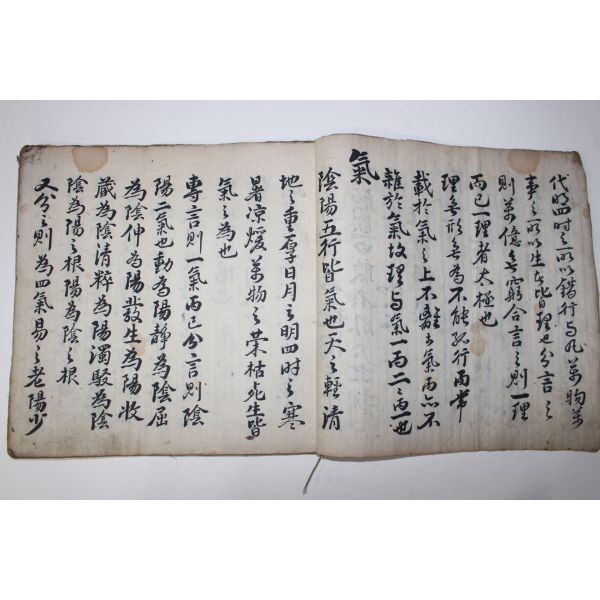 代明四时之所以錯行与凡萬物萬
事之所以生皆曰理也分言之
則萬億無窮合言之則一理
而已一理者太極也
理無形無為不能孤行而常
載於氣之上不離乎氣而亦不
雜於氣故理与氣一而二二而一也
氣
陰陽五行皆氣也天之輕清
地之重厚日月之明四时之寒
暑凉煖萬物之荣枯死生皆
氣之為也
專言則一氣而已分言則陰
陽二氣也動為陽静為陰屈
為陰伸為陽發生為陽收
藏為陰清粹為陽濁駁為陰
陰為陽之根陽為陰之根
又分之則為四氣易之老陽少